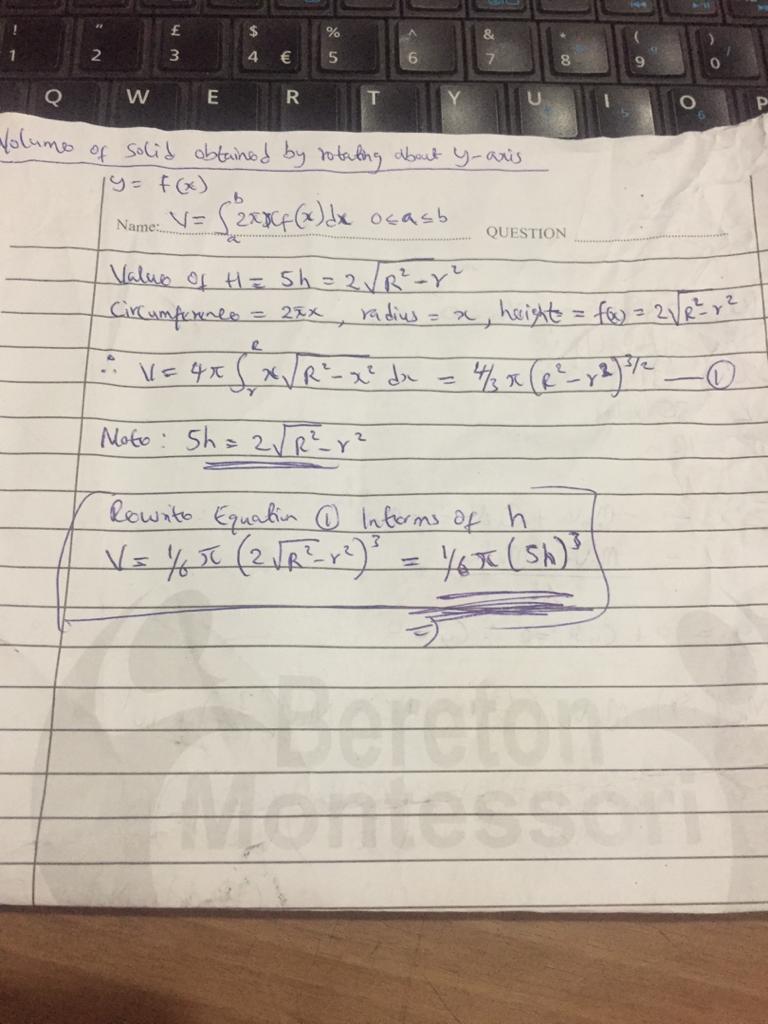 ! " £ $ % ^ & * ( )
1 2 3 4 € 5 6 7 8 9 0
Q W E R T Y U I O P
Volume of Solid obtained by rotating about y-axis
y = f(x)
Name: V = ∫ₐᵇ 2πxf(x)dx 0≤a≤b QUESTION
Value of H = 5h = 2√R²-r²
Circumference = 2πx, radius = x, height = f(x) = 2√R²-r²
∴ V = 4π ∫ᵣᴿ x√R²-x² dx = 4/3 π (R²-r²)^3/2 — ①
Note: 5h = 2√R²-r²
Rewrite Equation ① Interms of h
V = 1/6 π (2√R²-r²)³ = 1/6 π (5h)³
⇒
Bereton
Montessori